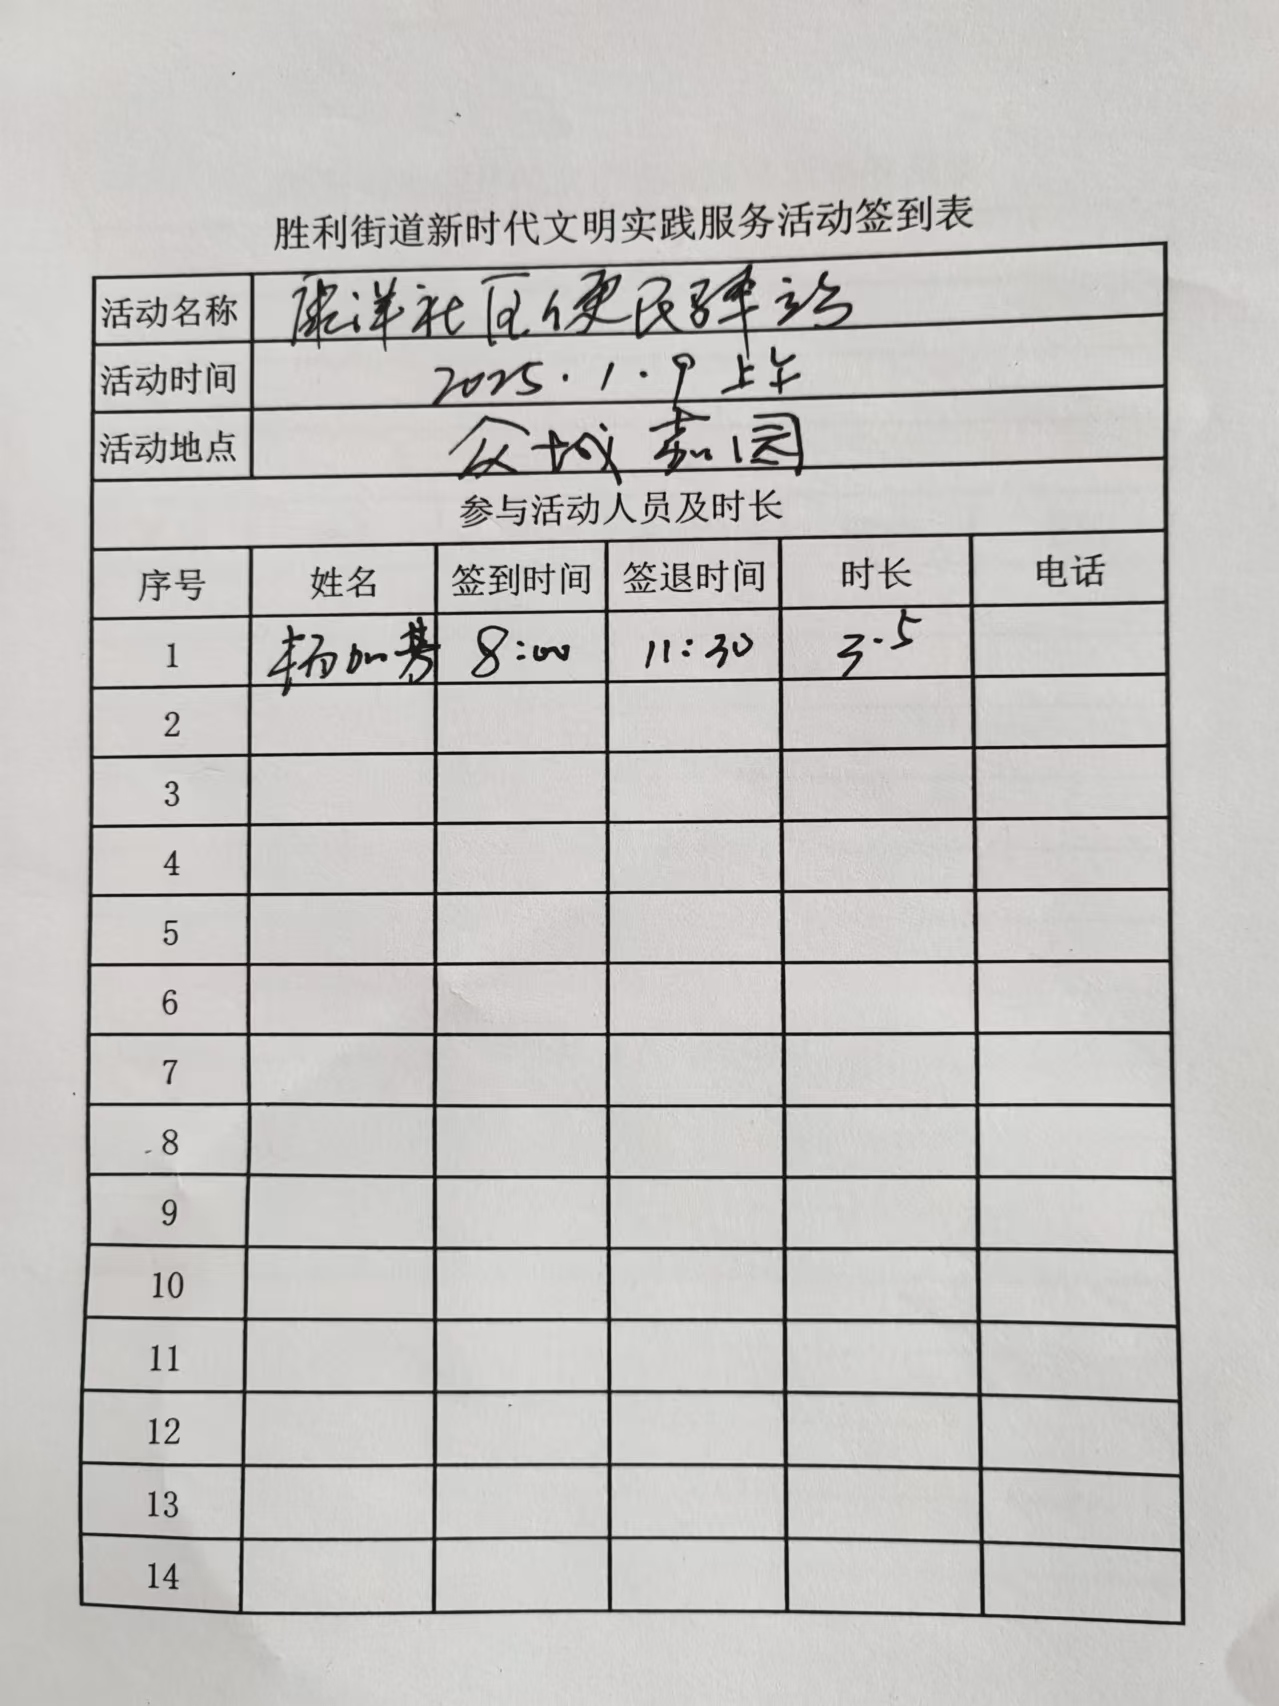 胜利街道新时代文明实践服务活动签到表
活动名称 康洋社区便民驿站
活动时间 2025.1.9 上午
活动地点 众城嘉园
参与活动人员及时长
序号 姓名 签到时间 签退时间 时长 电话
1 杨加 8:00 11:30 3.5
2
3
4
5
6
7
8
9
10
11
12
13
14